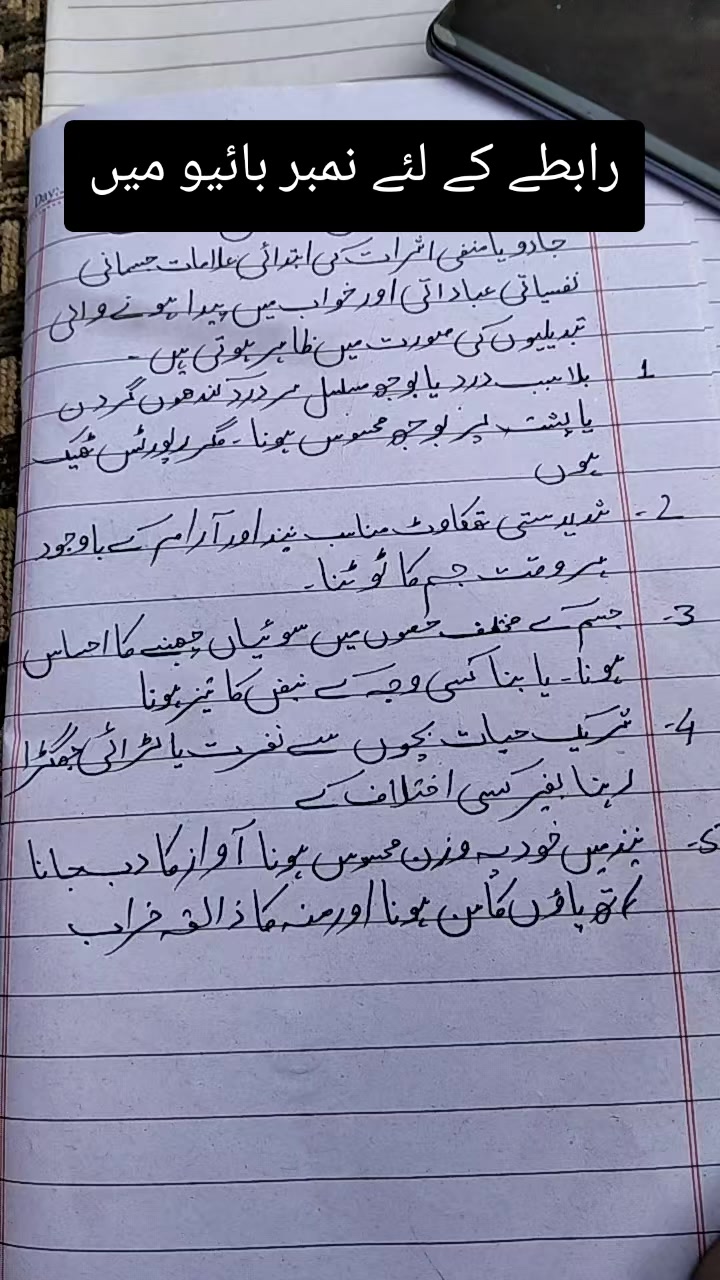 رابطے کے لئے نمبر بائیو میں
Day:
جادو یا منفی اثرات کی ابتدائی علامات جسمانی
نفسیاتی عباداتی اور خواب میں پیدا ہونے والی
تبدیلیوں کی صورت میں ظاہر ہوتی ہیں ۔
1 بلاسبب درد یا بوجھ مسلسل سر درد کندھوں گردن
یا پشت پر بوجھ محسوس ہونا ۔ مگر رپورٹس ٹھیک
ہوں
2- شدید سستی تھکاوٹ مناسب نیند اور آرام کے باوجود
ہر وقت جسم کا ٹوٹنا۔
3- جسم کے مختلف حصوں میں سوئیاں چبھنے کا احساس
ہونا۔ یا بنا کسی وجہ کے نبض کا تیز ہونا
4- شریک حیات بچوں سے نفرت یا لڑائی جھگڑا
رہنا بغیر کسی اختلاف کے
5- نیند میں خود پہ وزن محسوس ہونا آواز کا دب جانا
ہاتھ پاؤں کا سن ہونا اور منہ کا ذائقہ خراب